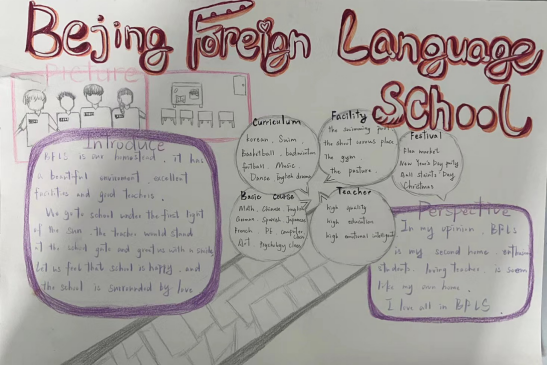 Bejing Foreign Language
School
Picture
Introduce
BFLS is our homestead, it has
a beautiful enviroment, excellent
facilities and good teachers.
We go to school under the first light
of the sun, the teacher would stand
at the school gate and greet us with a smile,
Let us feel that school is happy, and
the school is surrounded by love
Curriculum
Korean, Swim,
basketball, badminton
football, Music,
Dance English drama
Facility
the swimming pool
the short course place
The gym,
The pasture,
Festival
Flea market
New Year's Day party
All students' Day,
Christmas
Basic Course
Math Chinese English
German Spanish Japanese
French, PE computer class
Art, Psychology class
Teacher
high quality
high education
high emotional intelligent
Perspective
In my opinion, BFLS
is my second home,
students, loving teacher, is seem
like my own home.
I love all in BFLS